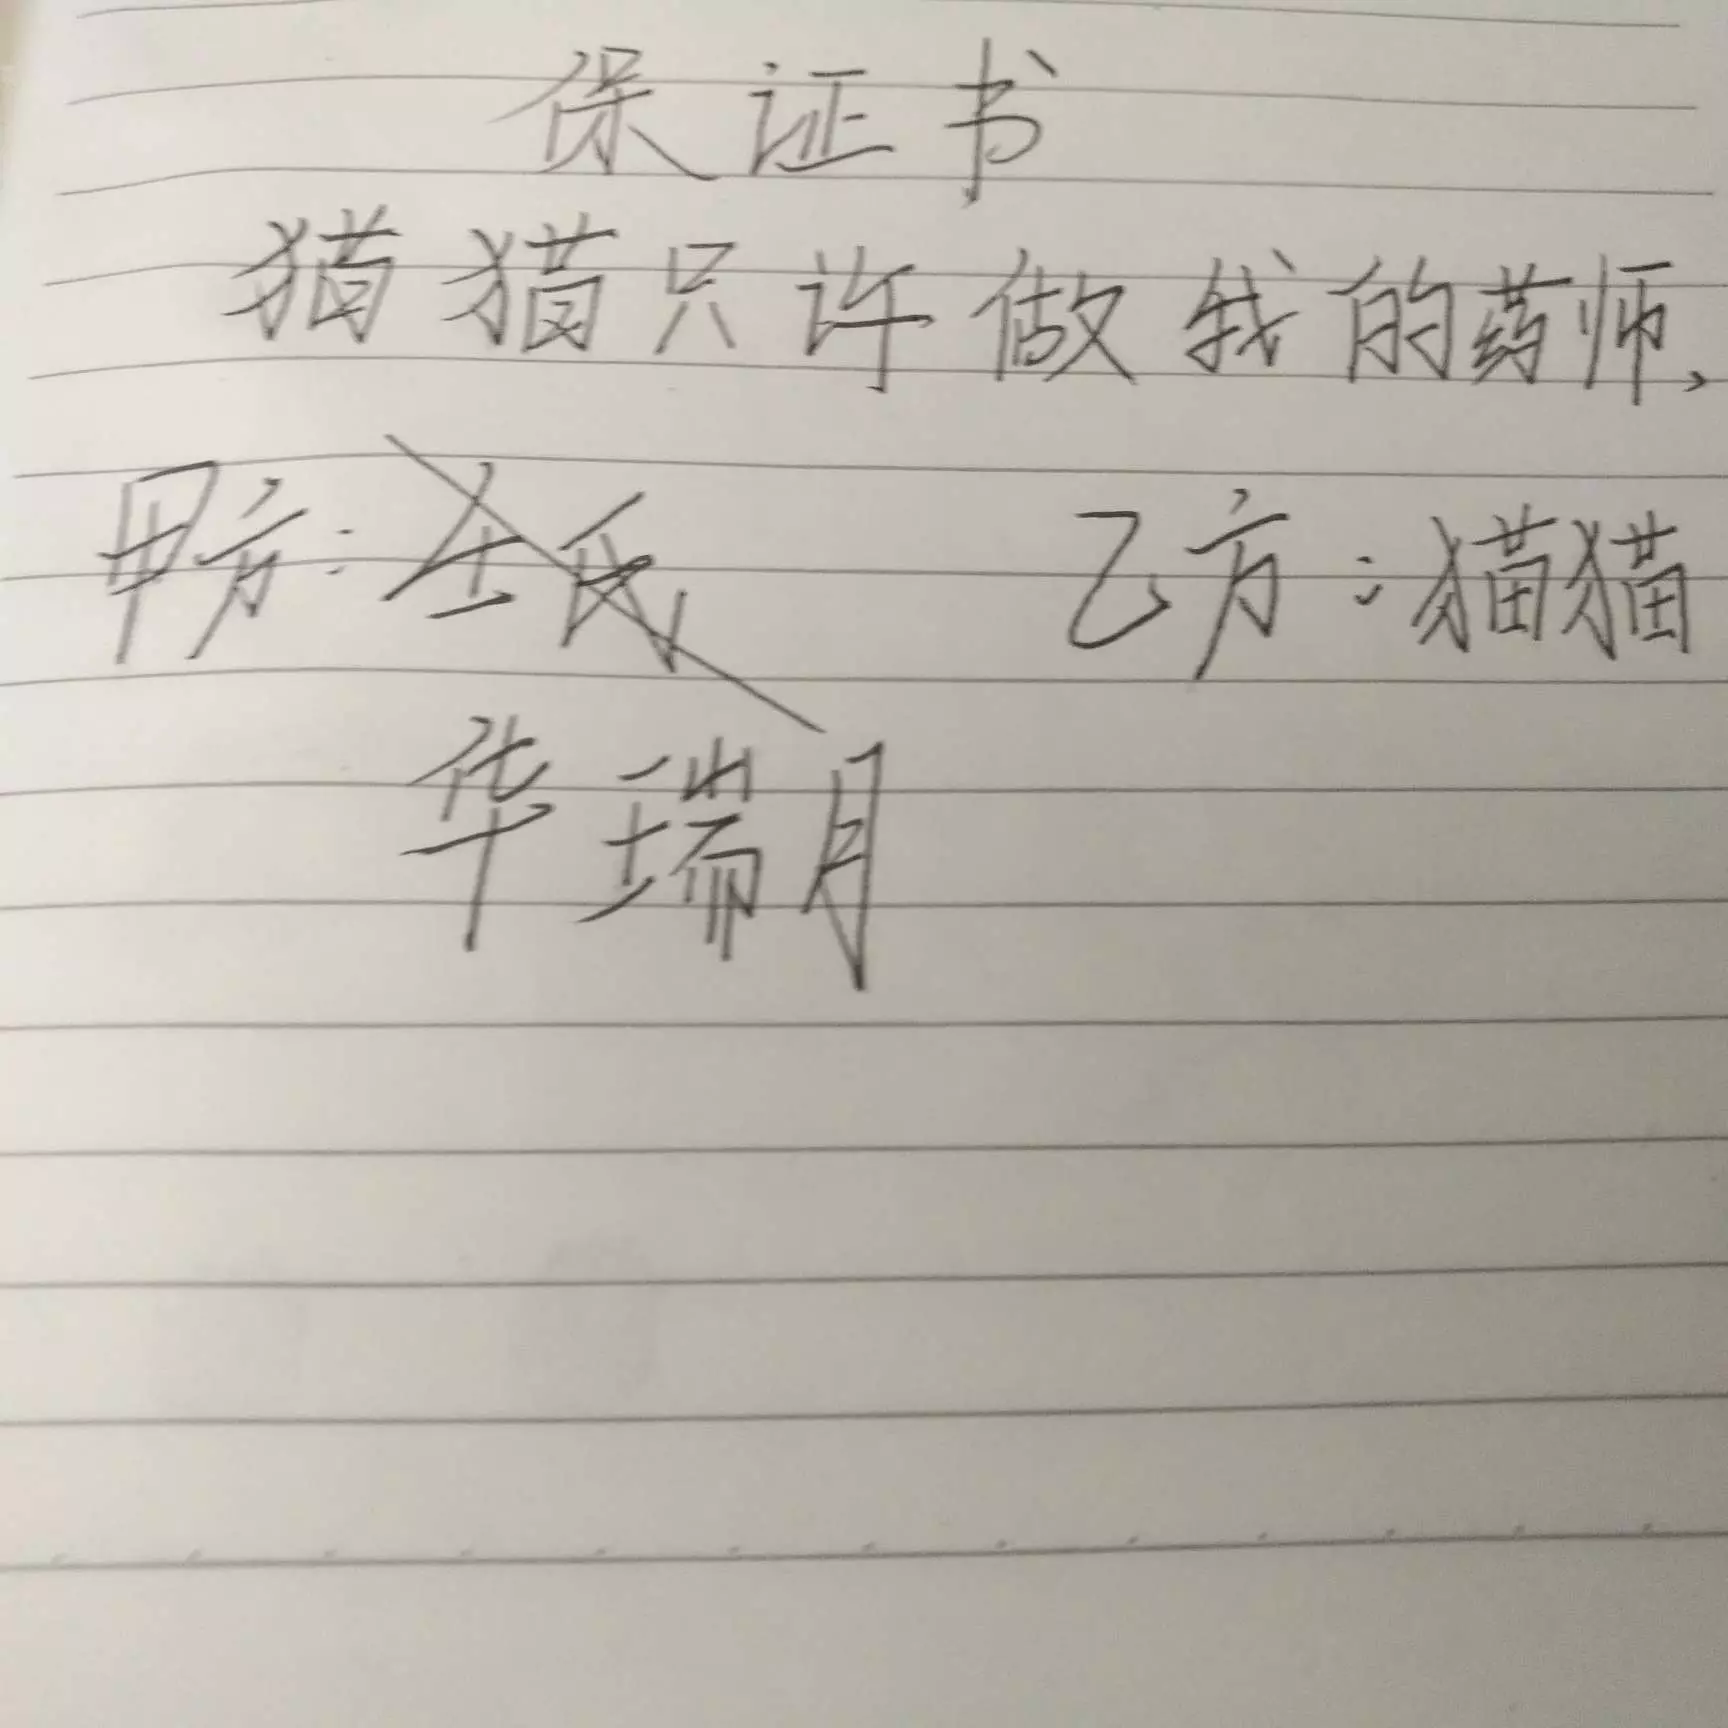 保证书
猫猫只许做我的药师、
甲方：壬氏 乙方：猫猫
华瑞月